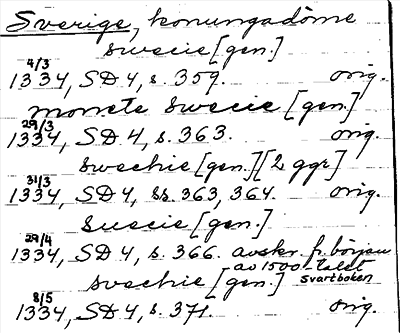 Sverige, konungadöme
swecie [gen.]
4/3
1334, SD 4, s. 359. orig.
monete swecie [gen.]
29/3
1334, SD 4, s. 363. orig.
swechie [gen.] [2 ggr]
31/3
1334, SD 4, ss. 363, 364. orig.
suecie [gen.]
29/4
1334, SD 4, s. 366. avskr. fr. början
av 1500-talet
svechie [gen.] Svartboken
8/5
1334, SD 4, s. 371. orig.